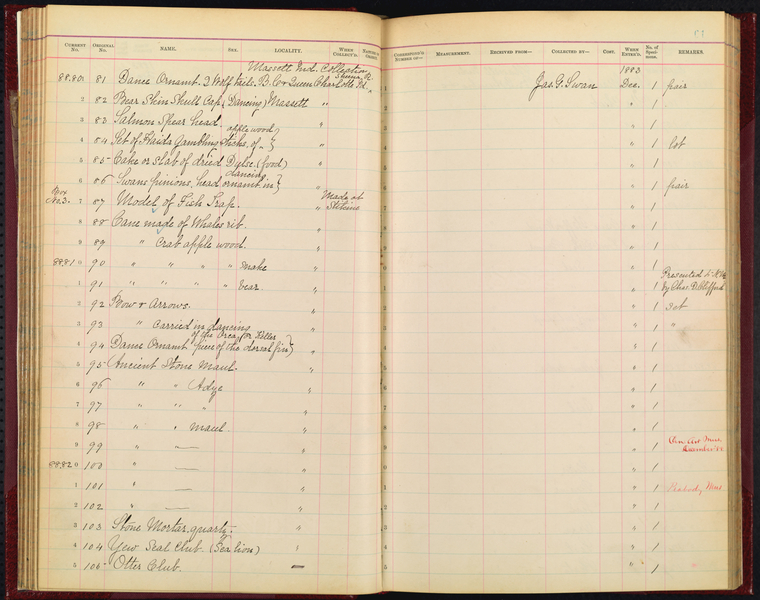 17
CURRENT NO. ORIGINAL NO. NAME. SEX. LOCALITY. WHEN COLLECT'D.
CORRESPOND'G NUMBER OF— MEASUREMENT. RECEIVED FROM— COLLECTED BY— COST. WHEN ENTER'D. No. of Specimens. REMARKS.
Massett Ind. Collection
1883
88801 81 Dance Ornamt. 2 Wolf tails. B.C. or Queen Charlotte Id. Jas. G. Swan Dec. 1 pair
2 82 Bear Skin Skull Cap (Dancing) Massett " " 1
3 83 Salmon Spear head. " " 1
apple wood
4 84 Set of Haida Gambling Sticks, of " } " " 1 lot
5 85 Cake or slab of dried Dulse. (food) " 1
dancing
6 86 Swans pinions, head ornamt. in } " " 1 pair
No. 3. 7 87 Model of Fish Trap. " Made at Stikine " 1
8 88 Cane made of Whales rib. " " 1
9 89 " Crab apple wood. " " 1
88810 90 " " " " snake " " 1
Presented to
1 91 " " " " bear " " 1 by Chas. B. Clifford
2 92 Bow & Arrows. " " 1 set
3 93 " Carried in dancing " " 1 "
of the Orca (or Killer
4 94 Dance Ornamt. piece of the dorsal fin) } " " 1
5 95 Ancient Stone Maul. " " 1
6 96 " " Adze " " 1
7 97 " " " " " 1
8 98 " " Maul. " " 1
9 99 " — " " 1
88820 100 " — " " 1
1 101 " — " " 1 Peabody Mus.
2 102 " — " " 1
3 103 Stone Mortar, quartz. " " 1
4 104 Yew Seal Club. (Sea lion) " " 1
5 105 Otter Club. " " 1